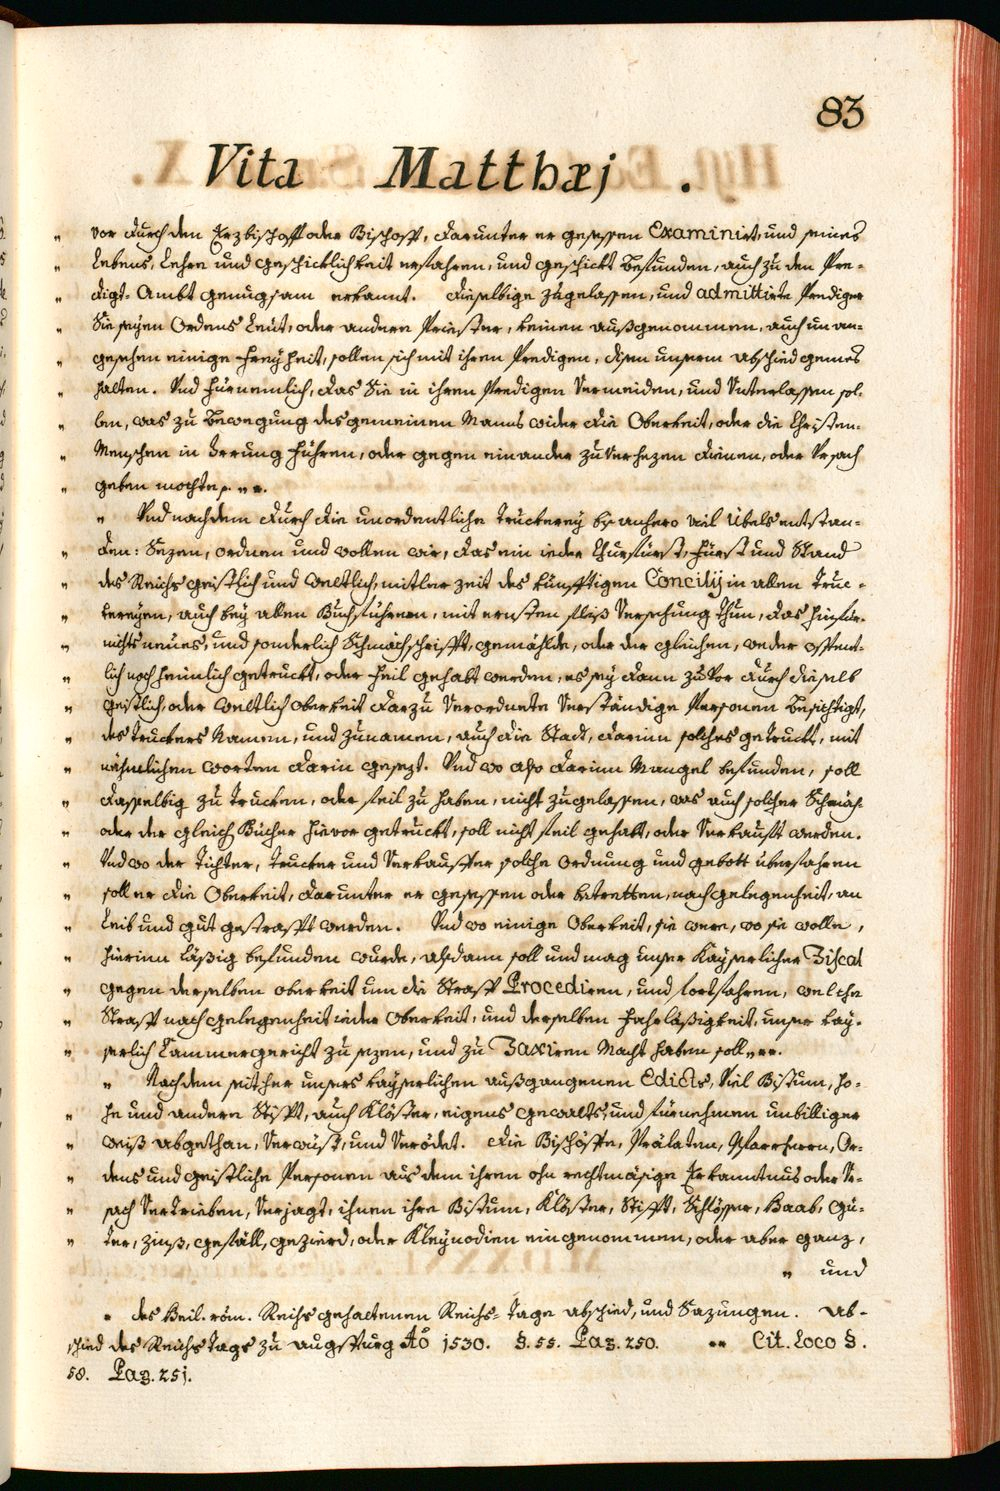 83
Vita Matthæj .
„ vor durch den Erzbischoff oder Bischoff, darunter er gesessen Examinirt, und seines
„ Lebens, Lehre und geschicklichkeit erfahren, und geschickt befunden, auch zu den Pre-
„ digt-Ambt genugsam erkannt. dieselbige zugelassen, und admittirte Prediger
„ Sie seyen Ordens Leut, oder andere Priester, keinen außgenommen, auch un an-
„ gesehen einige Freyheit, sollen sich mit ihren Predigen, disen unserm abschied gemes
„ halten. Vnd fürnemlich, das Sie in ihren Predigen Vermeiden, und Vnterlassen sol-
„ len, was zu bewegung des gemeinen Manns wider die Oberkeit, oder die Christen-
„ Menschen in Irrung führen, oder gegen einander zu Verhezen dienen, oder Vrsach
„ geben mochte, „ „ .
„ Vnd nachdem durch die unordentliche Truckerey bis anhero viel Übels entstan-
„ den: Sezen, ordnen und wollen wir, das ein ieder Churfürst, Fürst und Stand
„ des Reichs geistlich und weltlich, mitler zeit des künfftigen Concilij in allen Truc-
„ kereyen, auch bey allen Buchführern, mit ernsten fleiß Versehung thun, das hinfür-
„ nichts neues, und sonderlich Schmachschrifft, gemählde, oder der gleichen, weder offent-
„ lich noch heimlich getruckt, oder feil gehabt werden, es sey dann zuvor durch dieselb
„ geistlich, oder weltlich oberkeit darzu Verordnete Verständige Personen besichtigt,
„ des Truckers Namen, und Zunamen, auch die Stadt, darinn solches getruckt, mit
„ nähmlichen worten darin gesezt. Vnd wo also darinn Mangel befunden, soll
„ dasselbig zu trucken, oder feil zu haben, nicht zugelassen, was auch solcher Schmäh-
„ oder der gleich Bücher hievor getruckt, soll nicht feil gehabt, oder Verkaufft werden.
„ Vnd wo der Tichter, Trucker und Verkauffer solche ordnung und gebott überfahren
„ soll er die Oberkeit, darunter er gesessen oder betretten, nach gelegenheit, an
„ Leib und gut gestrafft werden. Vnd wo einige Oberkeit, sie were, wo sie wolle,
„ hierinn läßig befunden wurde, alsdann soll und mag unser Kayserlicher Fiscal
„ gegen derselben oberkeit um die Straff Procediren, und fortfahren, welche
„ Straff nach gelegenheit ieder Oberkeit, und derselben fahrläßigkeit, unser kay-
„ serlich Cammergericht zu sezen, und zu Taxiren Macht haben soll „ „ .
„ Nachdem seither unsers kayserlichen außgangenen Edicts, Viel Bistum, ho-
„ he und andere Stifft, auch Klöster, eigens gewalts, und fürnehmen unbilliger
„ weiß abgethan, Verwüst, und Verödet. die Bischöffe, Prälaten, Pfarrherrn, Or-
„ dens und geistliche Personen aus dem ihren ohn rechtmäsige Erkanntnus oder Vr-
„ sach Vertrieben, Verjagt, ihnen ihre Bistum, Klöster, Stifft, Schlösser, Haab, Gü-
„ ter, zinß, gefäll, gezierd, oder Kleynodien eingenommen, oder aber ganz,
„ und
„ des Heil. röm. Reichs gehaltenen Reichs-Tage abschied, und Sazungen. Ab-
schied des Reichs Tags zu augspurg Aō 1530. §. 55. Pag. 250. „ „ Cit. Loco §.
58. Pag. 251.